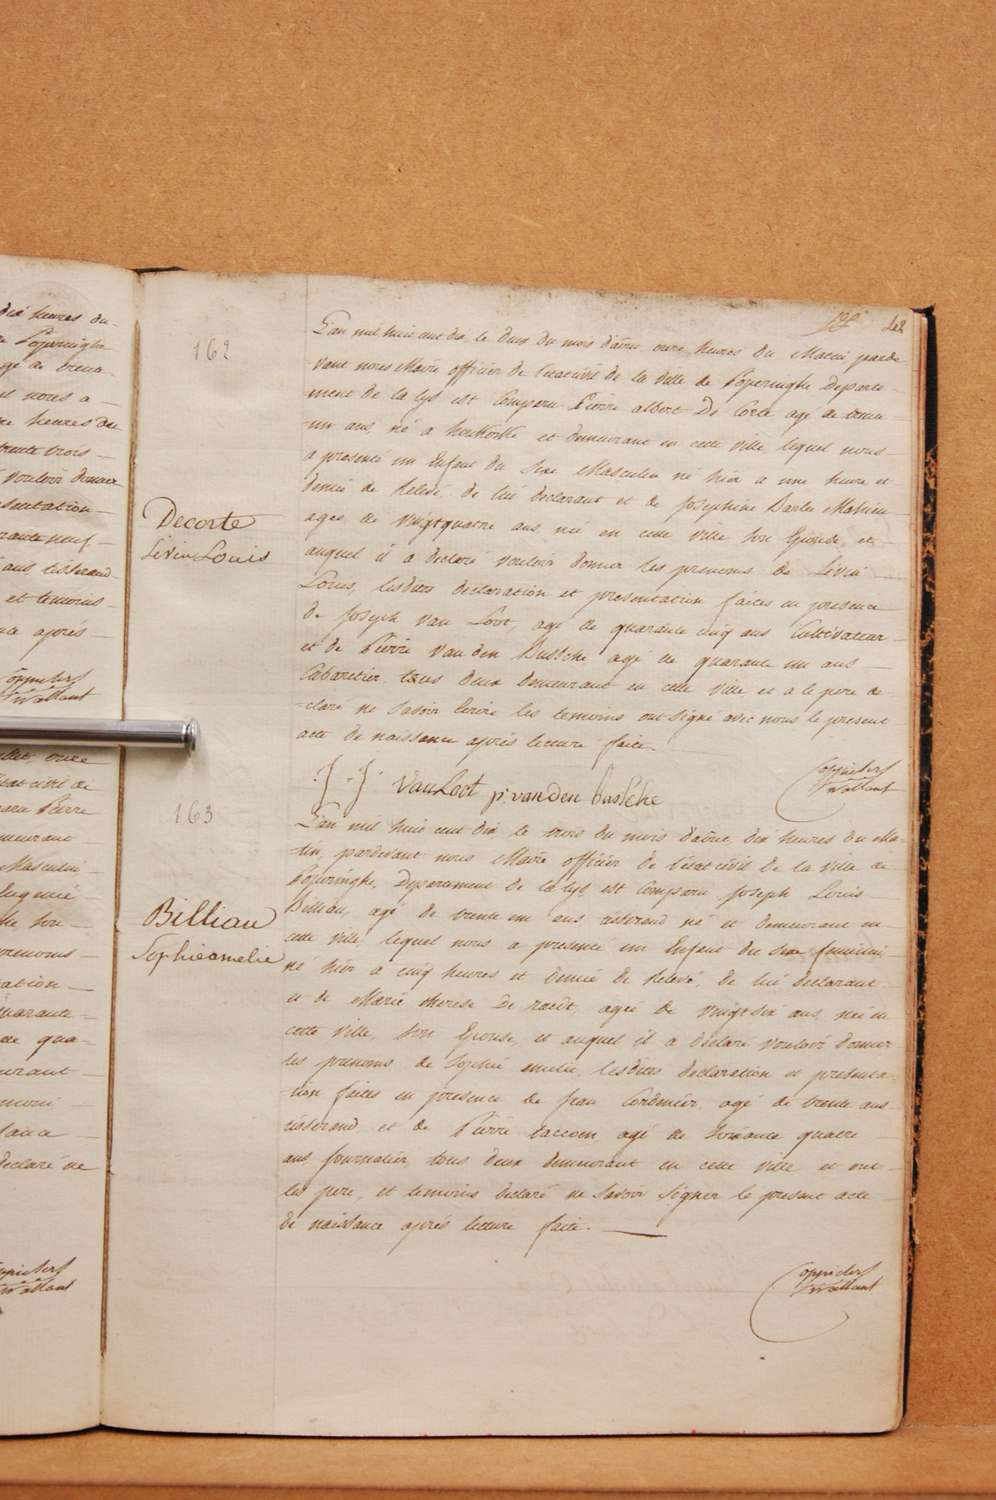 dix heures du
Poperinghe
agé de trente
nous a
heures du
trente trois
vouloir donner
presentation
quarante neuf
ans tisserand
et temoins
après
Coppieters
Wallant
onze
l'état civil de
Pierre
demeurant
Masculin
son
prenoms
quarante
qua-
demeurant
declaré ne
Coppieters
Wallant
42
162
Decorte
Lévin Louis
L'an mil huit cent dix le deux du mois d'août onze heures du Matin parde
vant nous Maire officier de l'état civil de la Ville de Poperinghe Departe
ment de la lys est Comparu Pierre albert De Corte agé de trente
un ans né a et demeurant en cette ville lequel nous
a presenté un Enfant du sexe Masculin né hier a une heure et
demie de relevé de lui declarant et de Josephine Barbe Mahieu
agée de vingtquatre ans née en cette ville son Epouse et
auquel il a declaré vouloir donner les prenoms de Lévin
Louis, lesdites declaration et presentation faites en presence
de Joseph Van Loot, agé de quarante cinq ans Cultivateur
et de Pierre Van den Bussche agé de quarante un ans
Cabaretier tous deux demeurant en cette Ville et a le pere de
claré ne savoir ecrire les temoins ont signé avec nous le present
acte de naissance après lecture faite.
J. J. Van Loot p: van den bussche
Coppieters
Wallant
163
Billiau
Sophie amelie
L'an mil huit cent dix le trois du mois d'août, dix heures du Ma-
tin, pardevant nous Maire officier de l'état civil de la ville de
Poperinghe, Departement de la lys est Comparu Joseph Louis
Billiau, agé de trente un ans tisserand né et demeurant en
cette Ville, lequel nous a presenté un Enfant du sexe feminin
né hier a cinq heures et demie de relevé, de lui declarant
et de Marie therese De raedt, agée de vingtsix ans, née en
cette ville, son Epouse, et auquel il a declaré vouloir donner
les prenoms de Sophie emelie, lesdites declaration et presenta-
tion faites en presence de Jean Cordenier, agé de trente ans
tisserand, et de Pierre taccoen agé de soixante quatre
ans, Journalier, tous deux demeurant en cette ville et ont
les pere, et temoins declaré ne savoir signer le present acte
de naissance après lecture faite.
Coppieters
Wallant